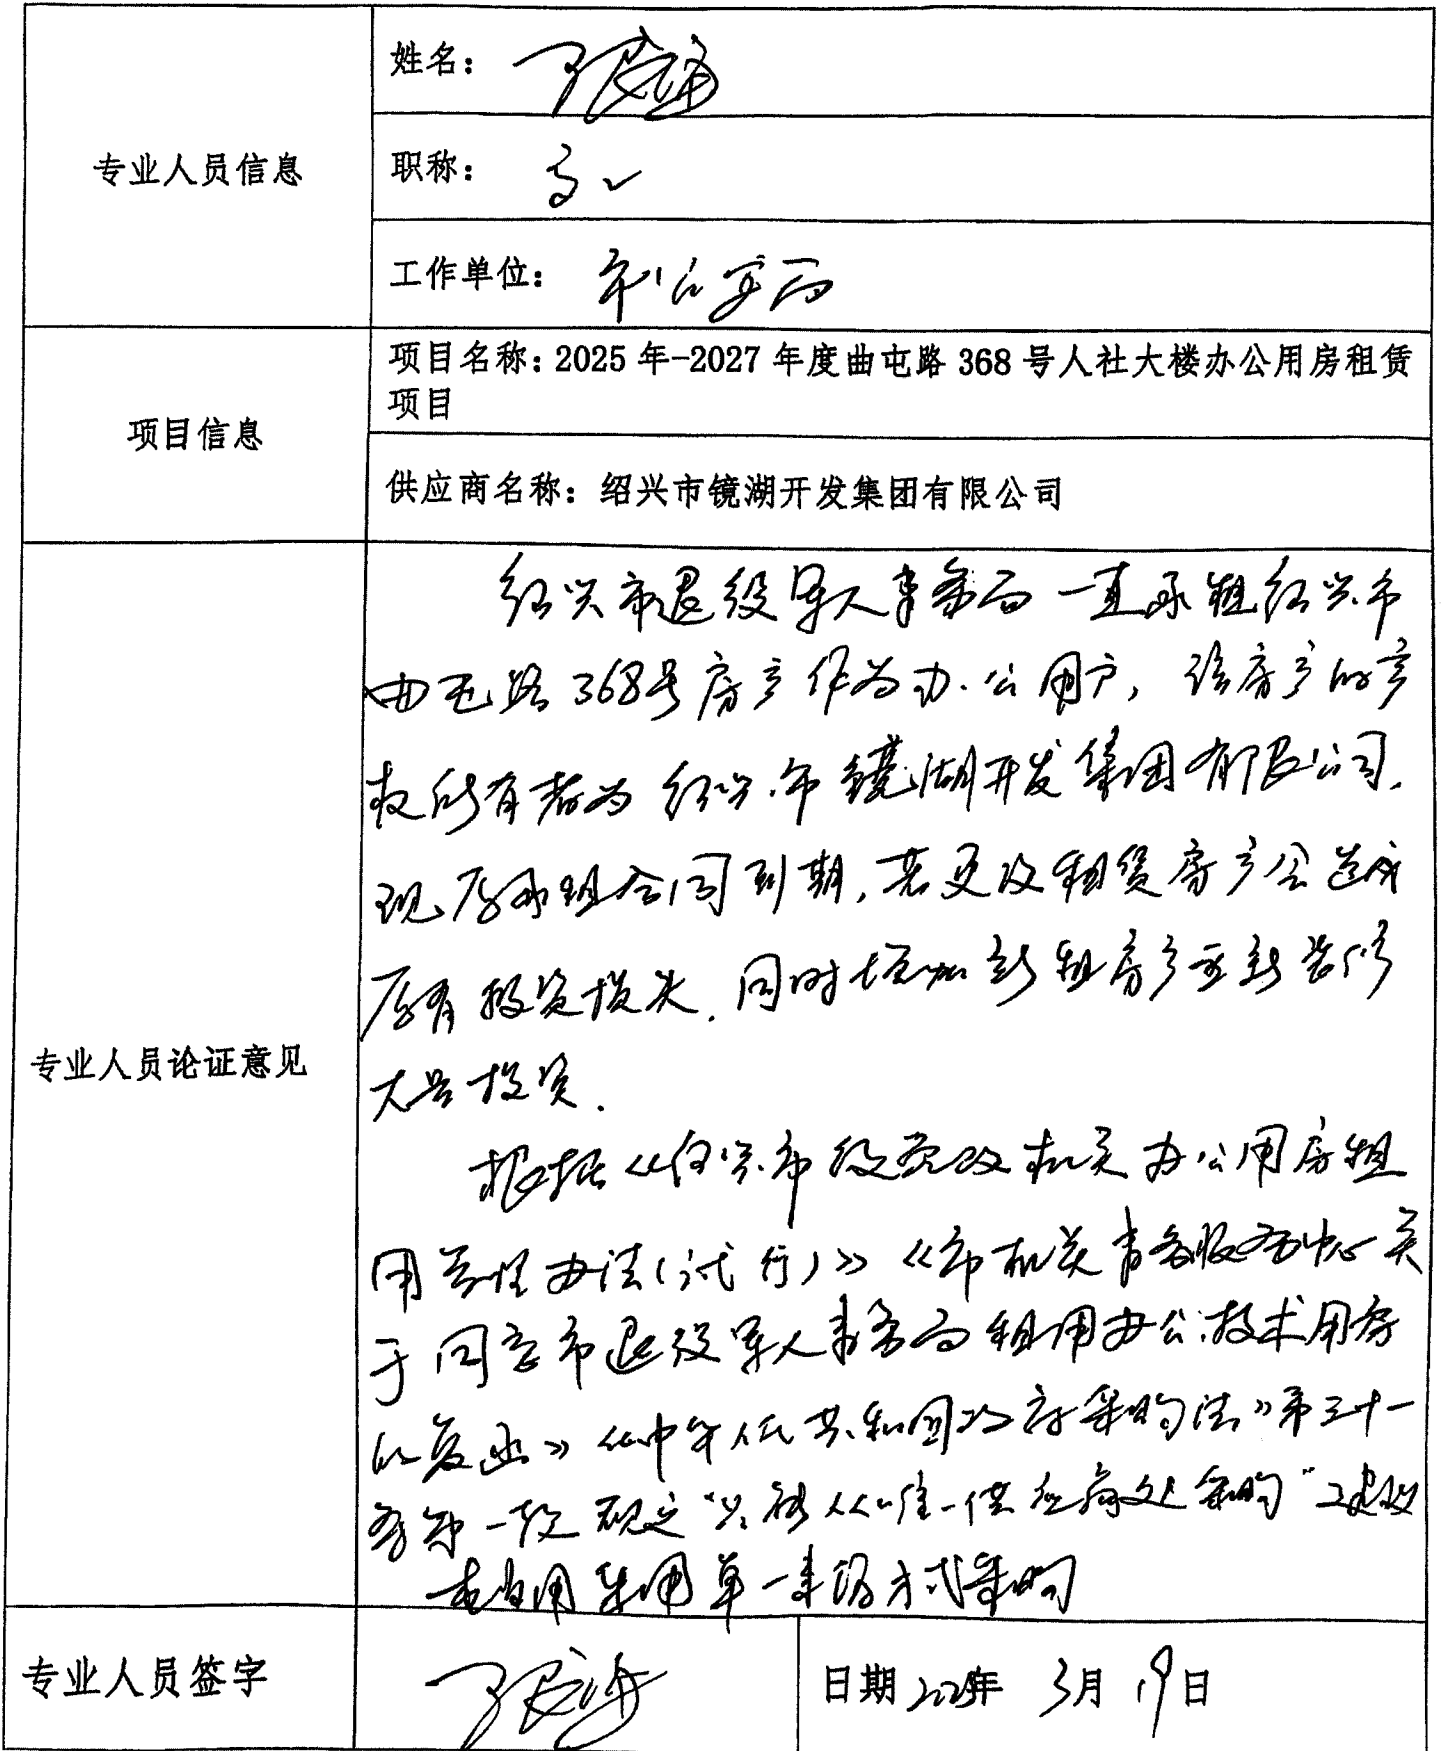 专业人员信息
姓名：张海
职称：高工
工作单位：
项目信息
项目名称：2025年-2027年度曲屯路368号人社大楼办公用房租赁
项目
供应商名称：绍兴市镜湖开发集团有限公司
专业人员论证意见
绍兴市退役军人事务局一直承租绍兴市
曲屯路368号房产作为办公用户，该房产的产
权所有者为绍兴市镜湖开发集团有限公司，
现原承租合同到期，若更改租赁房产会造成
原有投资损失，同时增加新租房产重新装修
大量投资．
根据《绍兴市级党政机关办公用房租
用管理办法（试行）》《市机关事务服务中心关
于同意市退役军人事务局租用办公技术用房
的复函》《中华人民共和国政府采购法》第三十一
条第一款规定“只能从唯一供应商处采购”建议
采用单一来源方式采购
专业人员签字
张海
日期2025年 3月19日